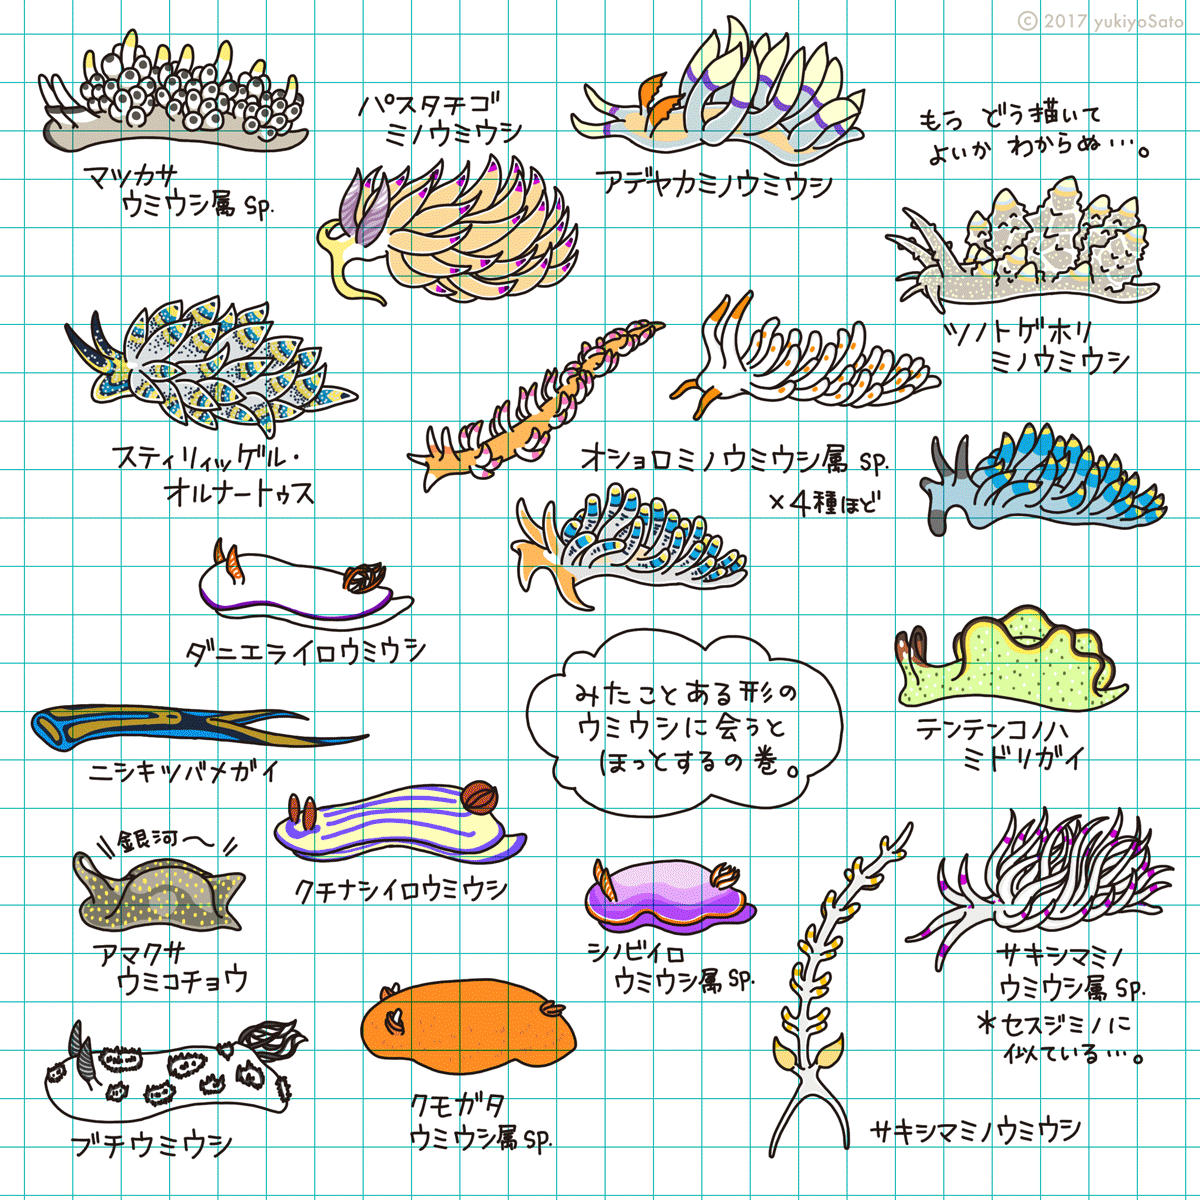 © 2017 yukiyoSato
マツカサ
ウミウシ属 sp.
パスタチゴ
ミノウミウシ
アデヤカミノウミウシ
もう どう描いて
よいか わからぬ…。
ツノトゲホリ
ミノウミウシ
スティリィッゲル・
オルナートゥス
オショロミノウミウシ属 sp.
×4種ほど
ダニエライロウミウシ
みたことある形の
ウミウシに会うと
ほっとするの巻。
テンテンコノハ
ミドリガイ
ニシキツバメガイ
クチナシイロウミウシ
銀河〜
アマクサ
ウミコチョウ
シノビイロ
ウミウシ属 sp.
サキシマミノ
ウミウシ属 sp.
＊セスジミノに
似ている…。
ブチウミウシ
クモガタ
ウミウシ属 sp.
サキシマミノウミウシ